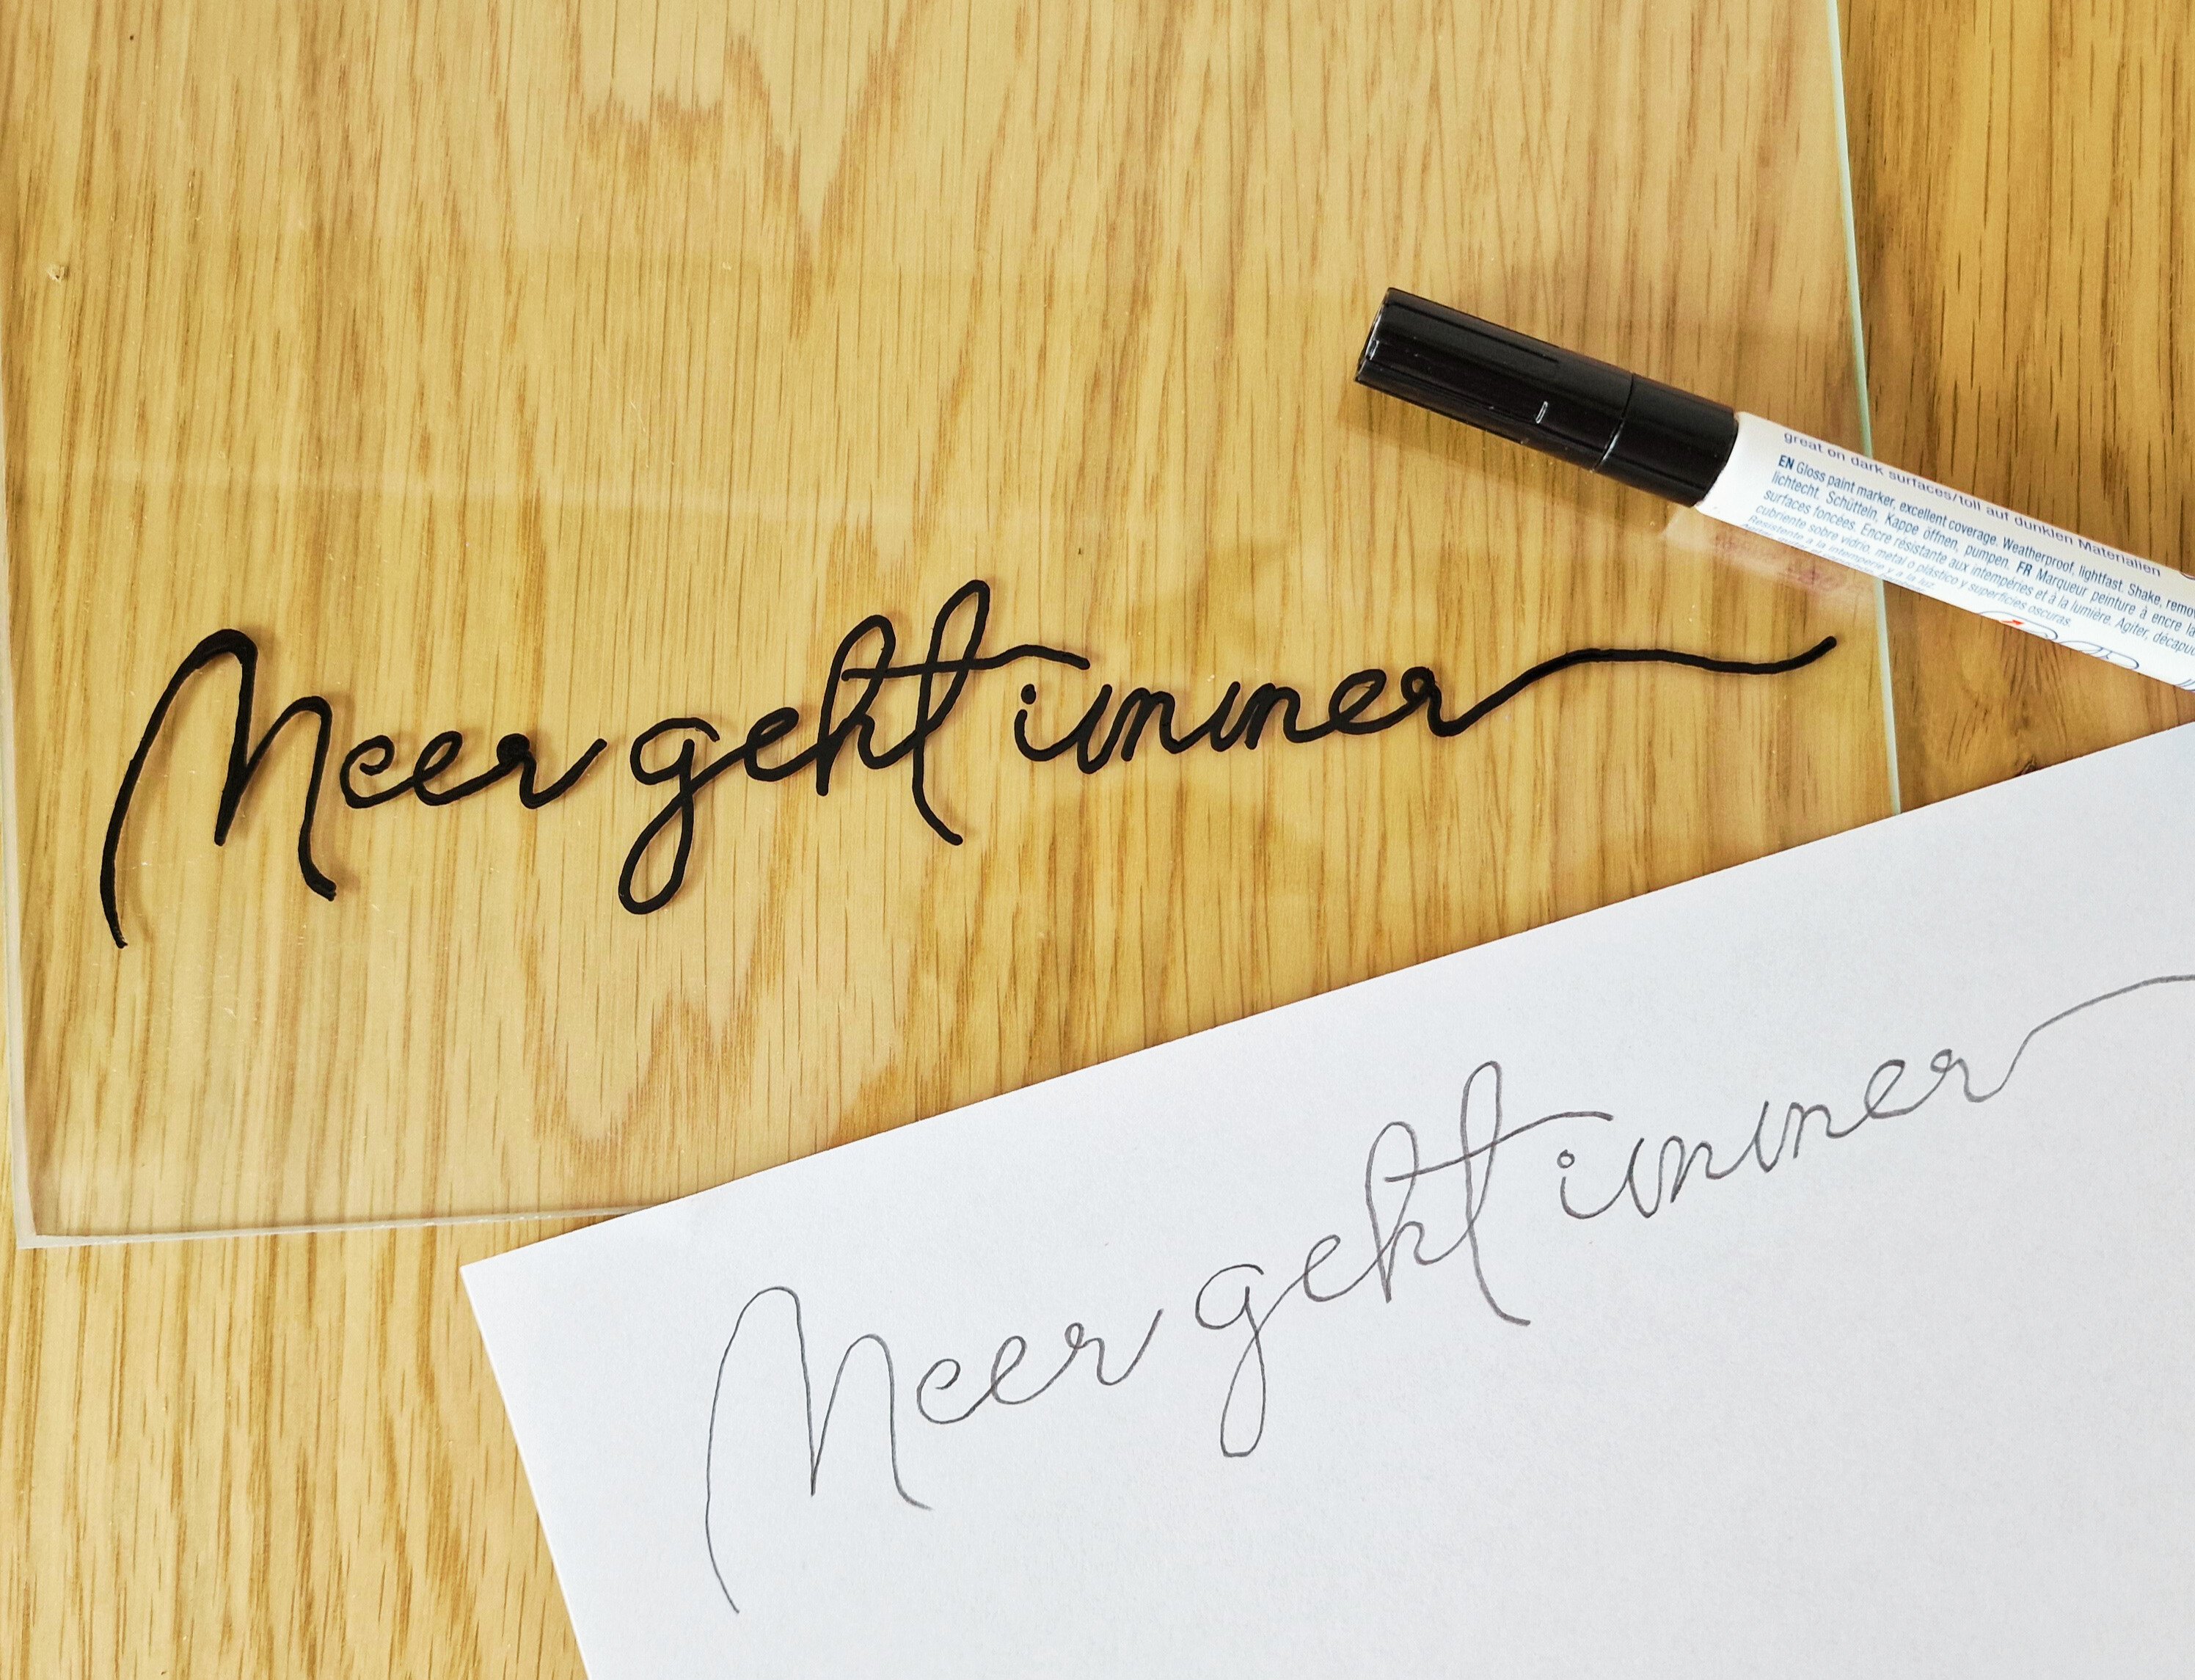 Meer geht immer
great on dark surfaces/toll auf dunklen Materialien
EN Gloss paint marker, excellent coverage. Weatherproof, lightfast. Shake, remo
lichtecht. Schütteln, Kappe öffnen, pumpen. FR Marqueur peinture à encre la
surfaces foncées. Encre résistante aux intempéries et à la lumière. Agiter, décapuc
cubriente sobre vidrio, metal o plástico y superficies oscuras.
Resistente a la intemperie y a la luz.
Meer geht immer